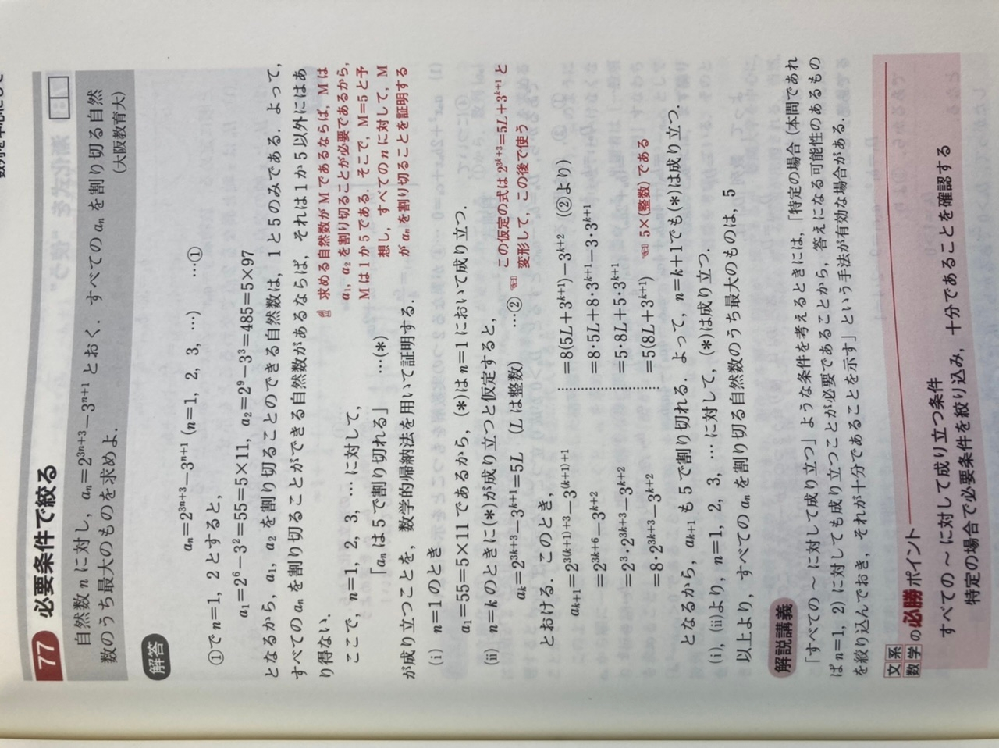 77 必要条件で絞る
自然数 n に対し，aₙ=2³ⁿ⁺³−3ⁿ⁺¹ とおく．すべての aₙ を割り切る自然
数のうち最大のものを求めよ．
（大阪教育大）
解答
aₙ=2³ⁿ⁺³−3ⁿ⁺¹ (n=1, 2, 3, …) …①
①で n=1, 2 とすると，
a₁=2⁶−3²=55=5×11, a₂=2⁹−3³=485=5×97
となるから，a₁, a₂ を割り切ることのできる自然数は，1 と 5 のみである．よって，
すべての aₙ を割り切ることができる自然数があるならば，それは 1 か 5 以外にはあ
り得ない．
求める自然数が M であるならば，M は
a₁, a₂ を割り切ることが必要であるから，
M は 1 か 5 である．そこで，M=5 と予
想し，すべての n に対して，M
が aₙ を割り切ることを証明する
ここで，n=1, 2, 3, … に対して，
「aₙ は 5 で割り切れる」 …(*)
が成り立つことを，数学的帰納法を用いて証明する．
(i) n=1 のとき
a₁=55=5×11 であるから，(*)は n=1 において成り立つ．
(ii) n=k のときに(*)が成り立つと仮定すると，
aₖ=2³ᵏ⁺³−3ᵏ⁺¹=5L (L は整数) …②
この仮定の式は 2³ᵏ⁺³=5L+3ᵏ⁺¹ と
変形して，この後で使う
とおける．このとき，
aₖ₊₁=2³⁽ᵏ⁺¹⁾⁺³−3⁽ᵏ⁺¹⁾⁺¹
=2³ᵏ⁺⁶−3ᵏ⁺²
=2³·2³ᵏ⁺³−3ᵏ⁺²
=8·2³ᵏ⁺³−3ᵏ⁺²
=8(5L+3ᵏ⁺¹)−3ᵏ⁺² (②より)
=8·5L+8·3ᵏ⁺¹−3·3ᵏ⁺¹
=5·8L+5·3ᵏ⁺¹
=5(8L+3ᵏ⁺¹) 5×(整数)である
となるから，aₖ₊₁ も 5 で割り切れる．よって，n=k+1 でも(*)は成り立つ．
(i), (ii)より，n=1, 2, 3, … に対して，(*)は成り立つ．
以上より，すべての aₙ を割り切る自然数のうち最大のものは，5
解説講義
「すべての～に対して成り立つ」ような条件を考えるときには，「特定の場合（本問であれ
ば n=1, 2）に対しても成り立つことが必要であることから，答えになる可能性のあるもの
を絞り込んでおき，それが十分であることを示す」という手法が有効な場合がある．
文系
数学 の必勝ポイント
すべての～に対して成り立つ条件
特定の場合で必要条件を絞り込み，十分であることを確認する